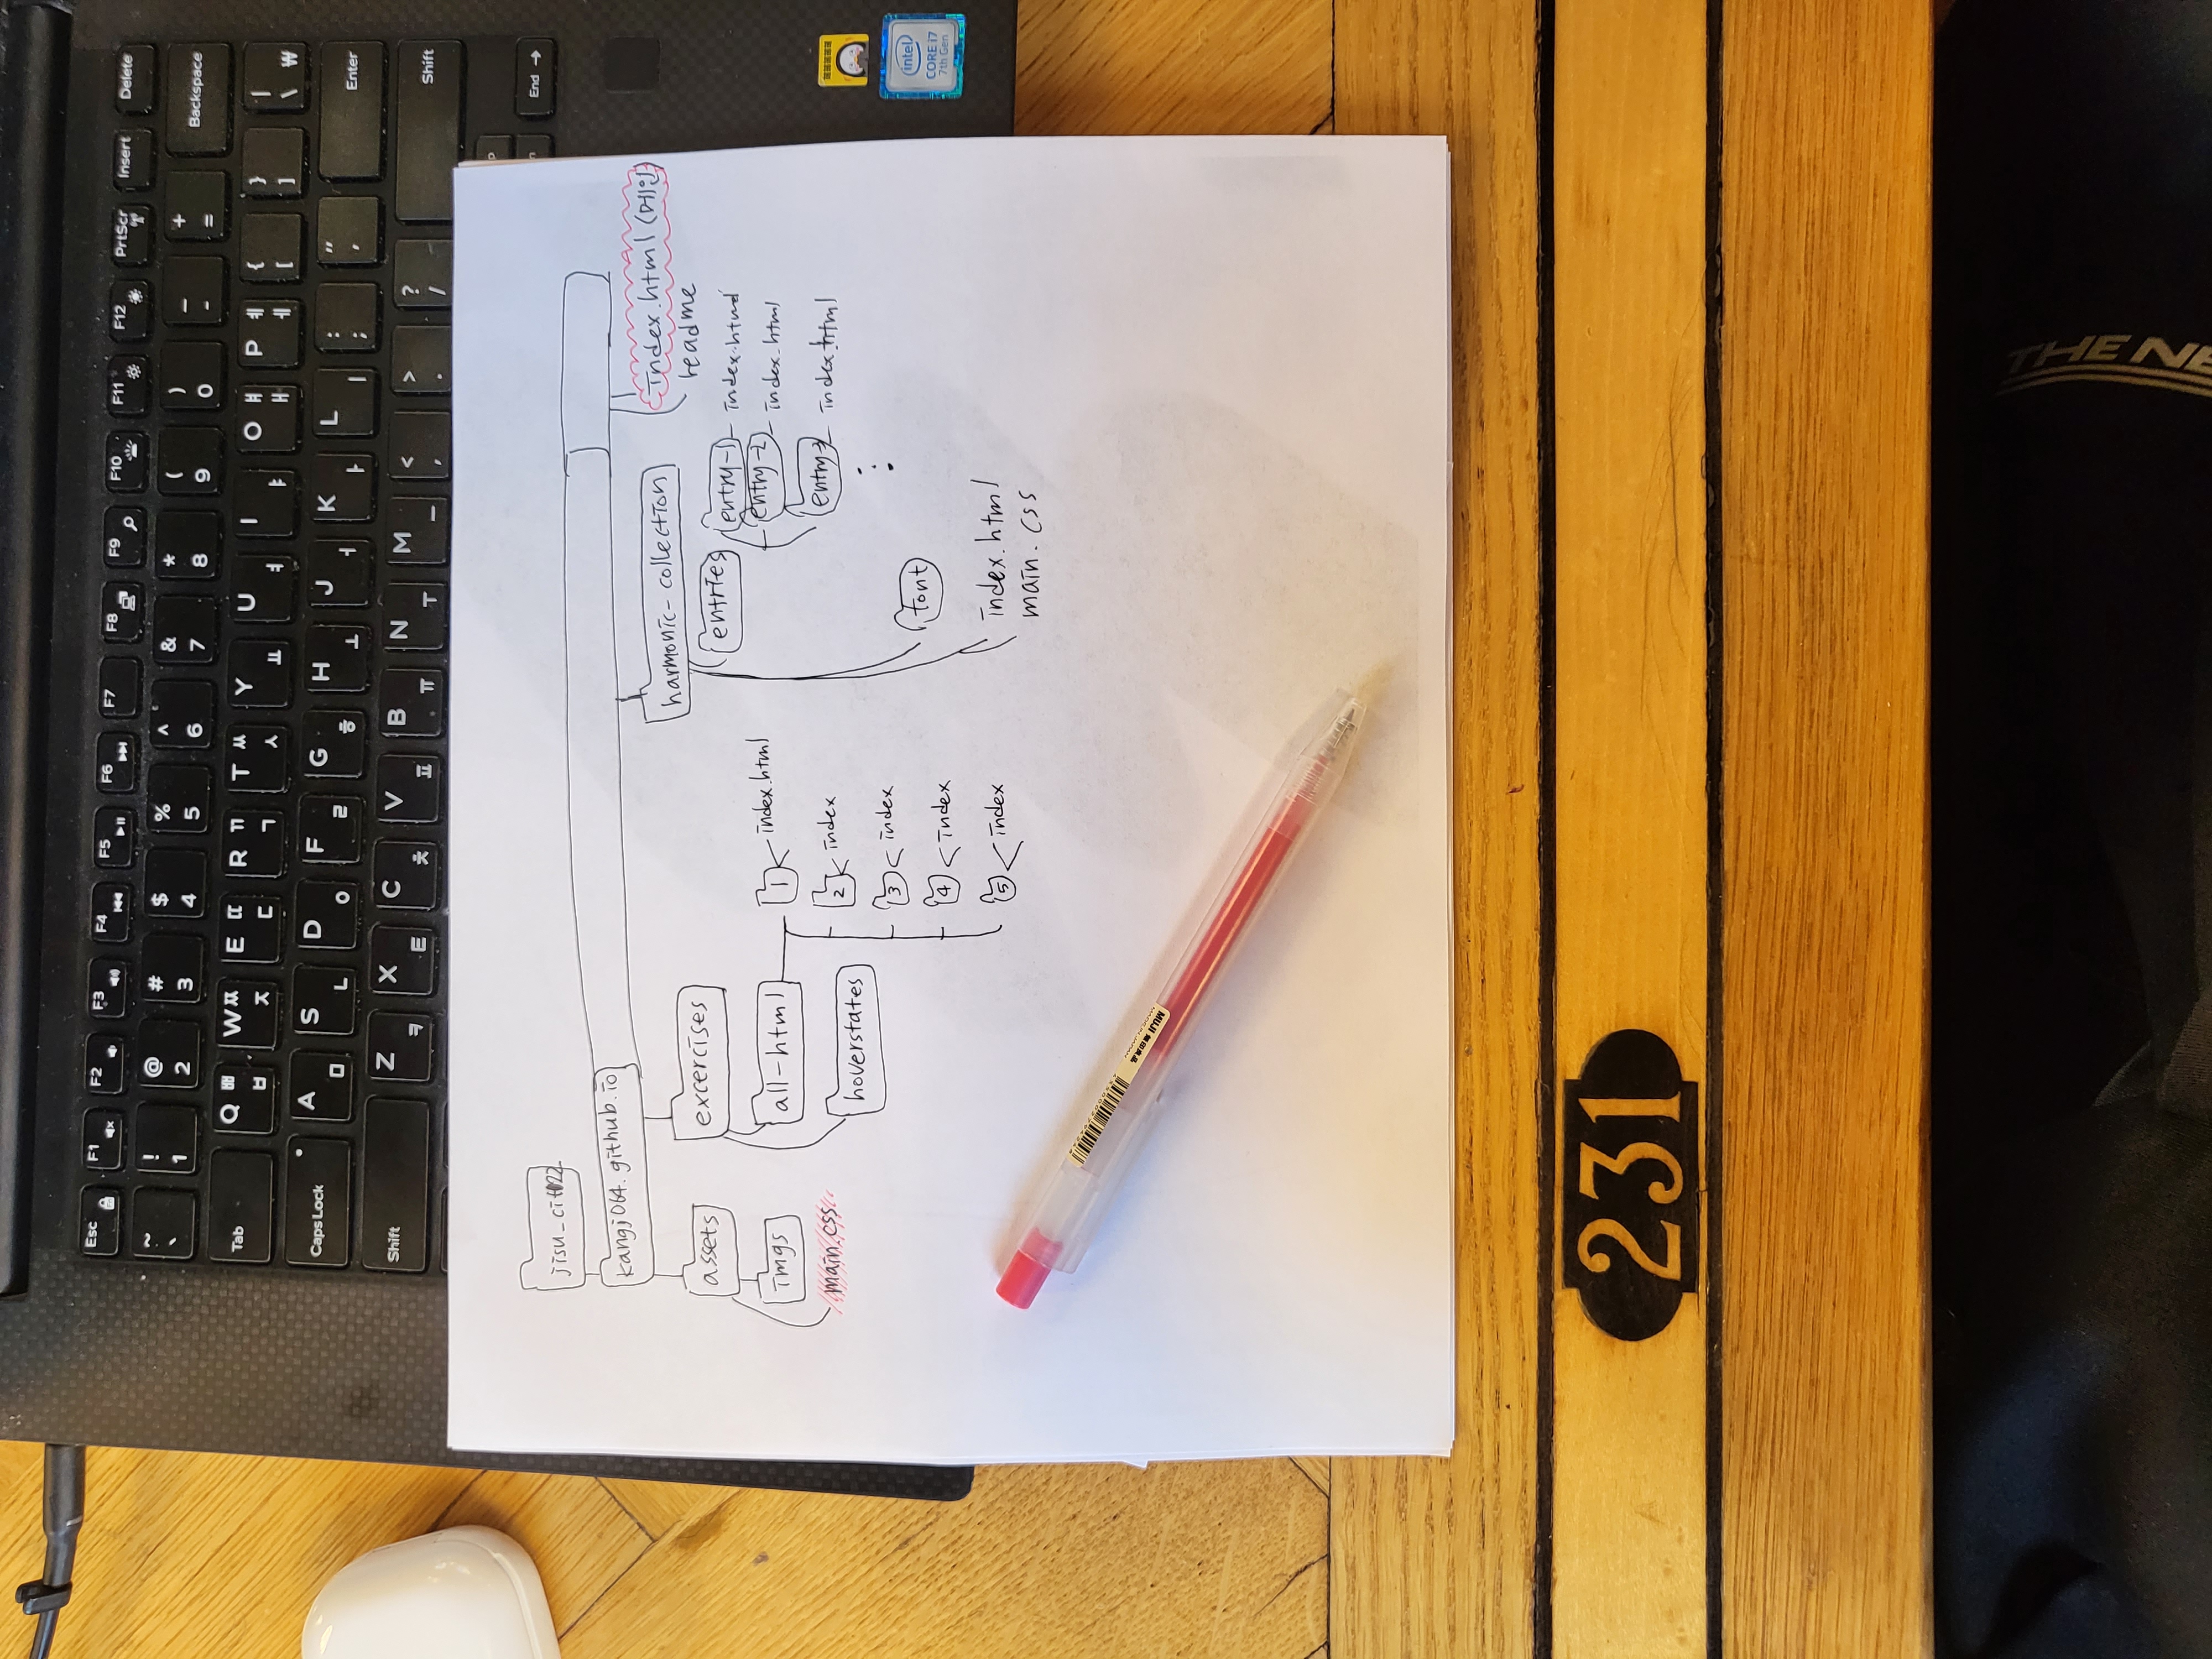 Esc F1 F2 F3 F4 F5 F6 F7 F8 F9 F10 F11 F12 PrtScr Insert Delete
~ ` ! 1 @ 2 # 3 $ 4 % 5 ^ 6 & 7 * 8 ( 9 ) 0 _ - + = Backspace
Tab Q ㅃ ㅂ W ㅉ ㅈ E ㄸ ㄷ R ㄲ ㄱ T ㅆ ㅅ Y ㅛ U ㅕ I ㅑ O ㅒ ㅐ P ㅖ ㅔ { [ } ] | \ ₩
Caps Lock A ㅁ S ㄴ D ㅇ F ㄹ G ㅎ H ㅗ J ㅓ K ㅏ L ㅣ : ; " ' Enter
Shift Z ㅋ X ㅌ C ㅊ V ㅍ B ㅠ N ㅜ M ㅡ < , > . ? / Shift
End →
kangj064.github.io
assets
imgs
main.css
excercises
all-html
hoverstates
1 index.html
2 index
3 index
4 index
5 index
harmonic-collection
entries
entry-1 index.html
entry-2 index.html
entry-3 index.html
font
index.html
main.css
index.html (메인)
readme
intel
CORE i7
7th Gen
MUJI 無印良品
MADE IN JAPAN
231
THE NE